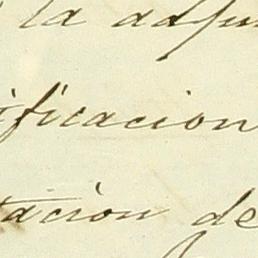 la adju
ificacion
tacion de